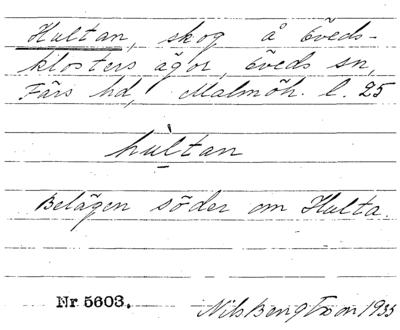 Hultan, skog å Öveds-
klosters ägor, Öveds sn,
Färs hd, Malmöh. l. 25
hùltan
Belägen söder om Hulta.
Nr 5603. Nils Bengtson 1933